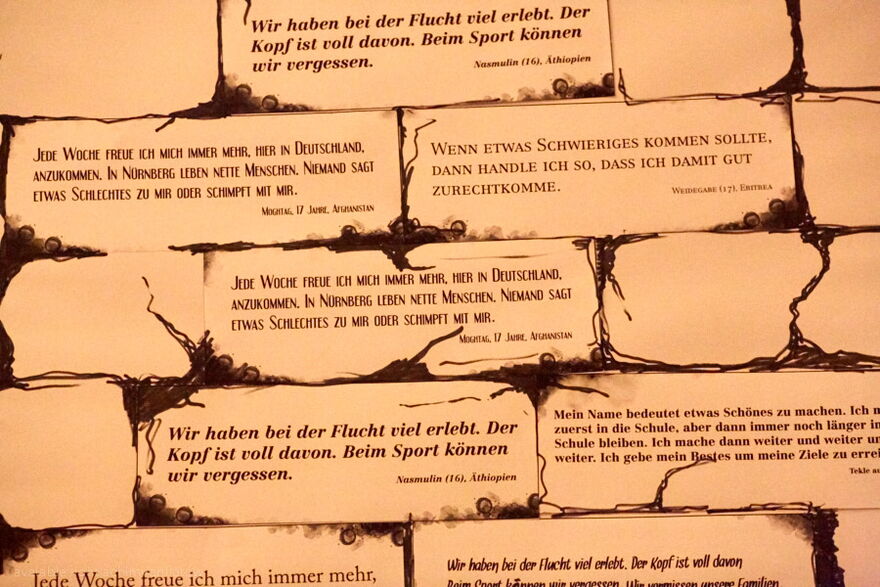 Wir haben bei der Flucht viel erlebt. Der
Kopf ist voll davon. Beim Sport können
wir vergessen.
Nasmulin (16), Äthiopien
Jede Woche freue ich mich immer mehr, hier in Deutschland,
anzukommen. In Nürnberg leben nette Menschen. Niemand sagt
etwas Schlechtes zu mir oder schimpft mit mir.
Moghtag, 17 Jahre, Afghanistan
Wenn etwas Schwieriges kommen sollte,
dann handle ich so, dass ich damit gut
zurechtkomme.
Weidegabe (17), Eritrea
Jede Woche freue ich mich immer mehr, hier in Deutschland,
anzukommen. In Nürnberg leben nette Menschen. Niemand sagt
etwas Schlechtes zu mir oder schimpft mit mir.
Moghtag, 17 Jahre, Afghanistan
Wir haben bei der Flucht viel erlebt. Der
Kopf ist voll davon. Beim Sport können
wir vergessen.
Nasmulin (16), Äthiopien
Mein Name bedeutet etwas Schönes zu machen. Ich
zuerst in die Schule, aber dann immer noch länger
Schule bleiben. Ich mache dann weiter und weiter
weiter. Ich gebe mein Bestes um meine Ziele zu
Tekle
Jede Woche freue ich mich immer mehr,
Wir haben bei der Flucht viel erlebt. Der Kopf ist voll davon
Beim Sport können wir vergessen. Wir vermissen unsere Familien